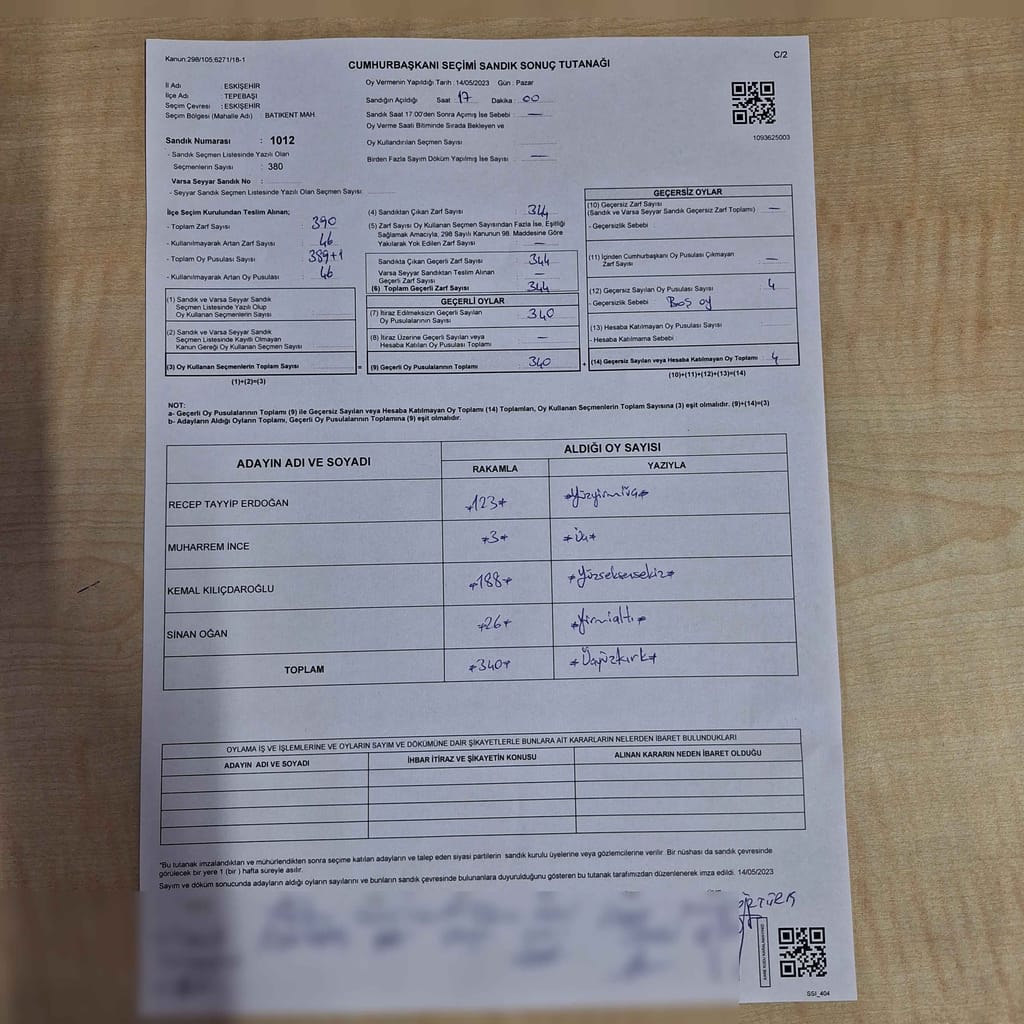 Kanun:298/105;6271/18-1
C/2
CUMHURBAŞKANI SEÇİMİ SANDIK SONUÇ TUTANAĞI
İl Adı : ESKİŞEHİR
İlçe Adı : TEPEBAŞI
Seçim Çevresi : ESKİŞEHİR
Seçim Bölgesi (Mahalle Adı) BATIKENT MAH.
Sandık Numarası : 1012
- Sandık Seçmen Listesinde Yazılı Olan
Seçmenlerin Sayısı : 380
Varsa Seyyar Sandık No :
- Seyyar Sandık Seçmen Listesinde Yazılı Olan Seçmen Sayısı:
Oy Vermenin Yapıldığı Tarih : 14/05/2023 Gün : Pazar
Sandığın Açıldığı Saat : 17 Dakika : 00
Sandık Saat 17.00'den Sonra Açımış İse Sebebi : —
Oy Verme Saati Bitiminde Sırada Bekleyen ve
Oy Kullandırılan Seçmen Sayısı :
Birden Fazla Sayım Döküm Yapılmış İse Sayısı : —
1093625003
İlçe Seçim Kurulundan Teslim Alınan;
- Toplam Zarf Sayısı : 390
- Kullanılmayarak Artan Zarf Sayısı : 46
- Toplam Oy Pusulası Sayısı : 389+1
- Kullanılmayarak Artan Oy Pusulası : 46
(1) Sandık ve Varsa Seyyar Sandık
Seçmen Listesinde Yazılı Olup
Oy Kullanan Seçmenlerin Sayısı :
(2) Sandık ve Varsa Seyyar Sandık
Seçmen Listesinde Kayıtlı Olmayan
Kanun Gereği Oy Kullanan Seçmen Sayısı :
(3) Oy Kullanan Seçmenlerin Toplam Sayısı =
(1)+(2)=(3)
(4) Sandıktan Çıkan Zarf Sayısı : 344
(5) Zarf Sayısı Oy Kullanan Seçmen Sayısından Fazla İse, Eşitliği
Sağlamak Amacıyla, 298 Sayılı Kanunun 98. Maddesine Göre
Yakılarak Yok Edilen Zarf Sayısı : —
Sandıkta Çıkan Geçerli Zarf Sayısı : 344
Varsa Seyyar Sandıktan Teslim Alınan
Geçerli Zarf Sayısı : —
(6) Toplam Geçerli Zarf Sayısı : 344
GEÇERLİ OYLAR
(7) İtiraz Edilmeksizin Geçerli Sayılan
Oy Pusulalarının Sayısı : 340
(8) İtiraz Üzerine Geçerli Sayılan veya
Hesaba Katılan Oy Pusulası Toplamı : —
(9) Geçerli Oy Pusulalarının Toplamı : 340 +
GEÇERSİZ OYLAR
(10) Geçersiz Zarf Sayısı
(Sandık ve Varsa Seyyar Sandık Geçersiz Zarf Toplamı) : —
- Geçersizlik Sebebi :
(11) İçinden Cumhurbaşkanı Oy Pusulası Çıkmayan
Zarf Sayısı : —
(12) Geçersiz Sayılan Oy Pusulası Sayısı : 4
- Geçersizlik Sebebi : Boş oy
(13) Hesaba Katılmayan Oy Pusulası Sayısı :
- Hesaba Katılmama Sebebi :
(14) Geçersiz Sayılan veya Hesaba Katılmayan Oy Toplamı : 4
(10)+(11)+(12)+(13)=(14)
NOT:
a- Geçerli Oy Pusulalarının Toplamı (9) ile Geçersiz Sayılan veya Hesaba Katılmayan Oy Toplamı (14) Toplamları, Oy Kullanan Seçmenlerin Toplam Sayısına (3) eşit olmalıdır. (9)+(14)=(3)
b- Adayların Aldığı Oyların Toplamı, Geçerli Oy Pusulalarının Toplamına (9) eşit olmalıdır.
ADAYIN ADI VE SOYADI ALDIĞI OY SAYISI
RAKAMLA YAZIYLA
RECEP TAYYİP ERDOĞAN *123* *Yüzyirmiüç*
MUHARREM İNCE *3* *Üç*
KEMAL KILIÇDAROĞLU *188* *Yüzseksensekiz*
SİNAN OĞAN *26* *Yirmialtı*
TOPLAM *340* *Üçyüzkırk*
OYLAMA İŞ VE İŞLEMLERİNE VE OYLARIN SAYIM VE DÖKÜMÜNE DAİR ŞİKAYETLERLE BUNLARA AİT KARARLARIN NELERDEN İBARET BULUNDUKLARI
ADAYIN ADI VE SOYADI İHBAR İTİRAZ VE ŞİKAYETİN KONUSU ALINAN KARARIN NEDEN İBARET OLDUĞU
*Bu tutanak imzalandıktan ve mühürlendikten sonra seçime katılan adayların ve talep eden siyasi partilerin sandık kurulu üyelerine veya gözlemcilerine verilir. Bir nüshası da sandık çevresinde
görülecek bir yere 1 (bir ) hafta süreyle asılır.
Sayım ve döküm sonucunda adayların aldığı oyların sayılarını ve bunların sandık çevresinde bulunanlara duyurulduğunu gösteren bu tutanak tarafımızdan düzenlenerek imza edildi. 14/05/2023
SSI_404